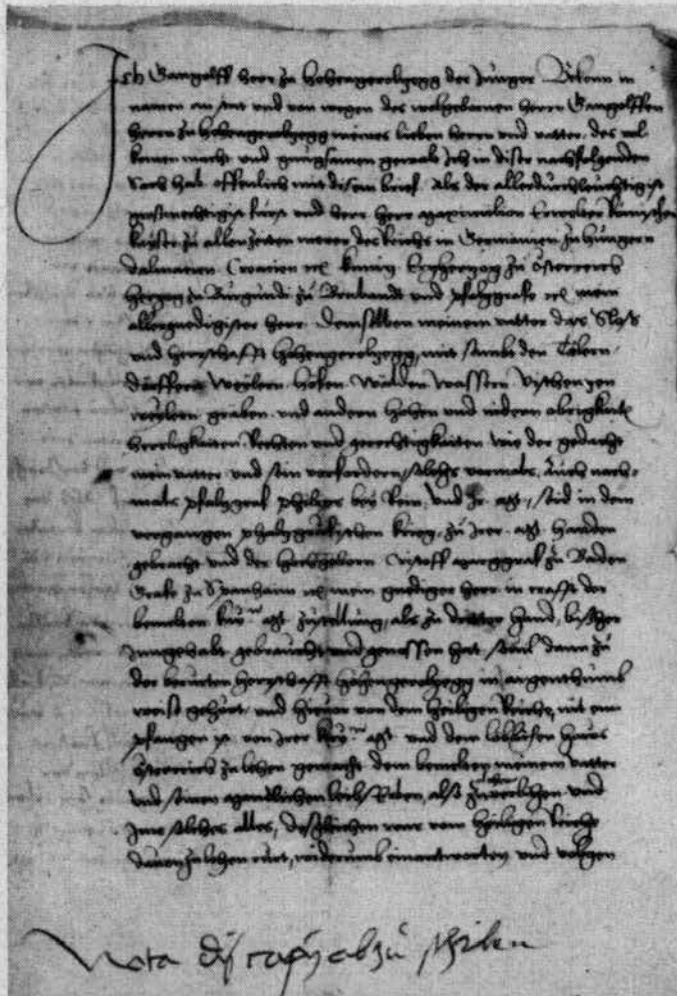 Ich Gangolff herr zu hohengeroltzegg der Junger Bekenn in
namen an stat und von wegen des wolgebornen herrn Gangolffen
herrn zu hohengeroltzegg meines lieben herrn und vatter, des vol
komen macht und gnugsamen gewalt Ich in diser nachfolgenden
Sach hab offenlich mit disem brief Als der allerdurchleuchtigist
großmechtigist fürst und herr herr Maximilian Erwelter Römischer
keyser zu allen zeiten merer des Reichs in Germanien zu hungern
dalmatien Croatien kunig Ertzhertzog zu Österreich
hertzog zu Burgundi zu Brabandt und pfaltzgrafe mein
allergnedigister herr Demselben meinem vatter das Sloß
und herrschafft hohengeroltzegg mit sambt den
dörffern Weylern höfen Wälden wassern Vischentzen
weyhern gräben und andern hohen und nidern obrigkait
herrligkaiten Rechten und gerechtigkaiten wie der gedacht
mein vatter und sein vorfordern solchs vormals, Auch nach-
mals pfaltzgraf philips bey Rein, und seid in dem
vergangen phaltzgräfischen krieg, zu Irer handen
gebracht und der hochgeborn Cristoff Marggraf zu Baden
Grafe zu Spanhaim mein gnediger herr in crafft der
bemelten zustellung, als zu dritter hand, bißher
Inngehabt gebraucht und genossen hat, sovil dann zu
der berurten herrschafft hohengeroltzegg in aigenthumb
weiß gehört und hievor von dem heiligen Reiche, nit em
pfangen ist von Irer und dem loblichen haus
Österreich zu lehen gemacht dem bemelten meinem vatter
und seinen Mendlichen leibs Erben, also zuverlihen und
Jme solches alles, desgleichen was vom heiligen Reiche
davon zu lehen rürt, widerumb einantworten und volgen
Nota diß copy abzuschriben